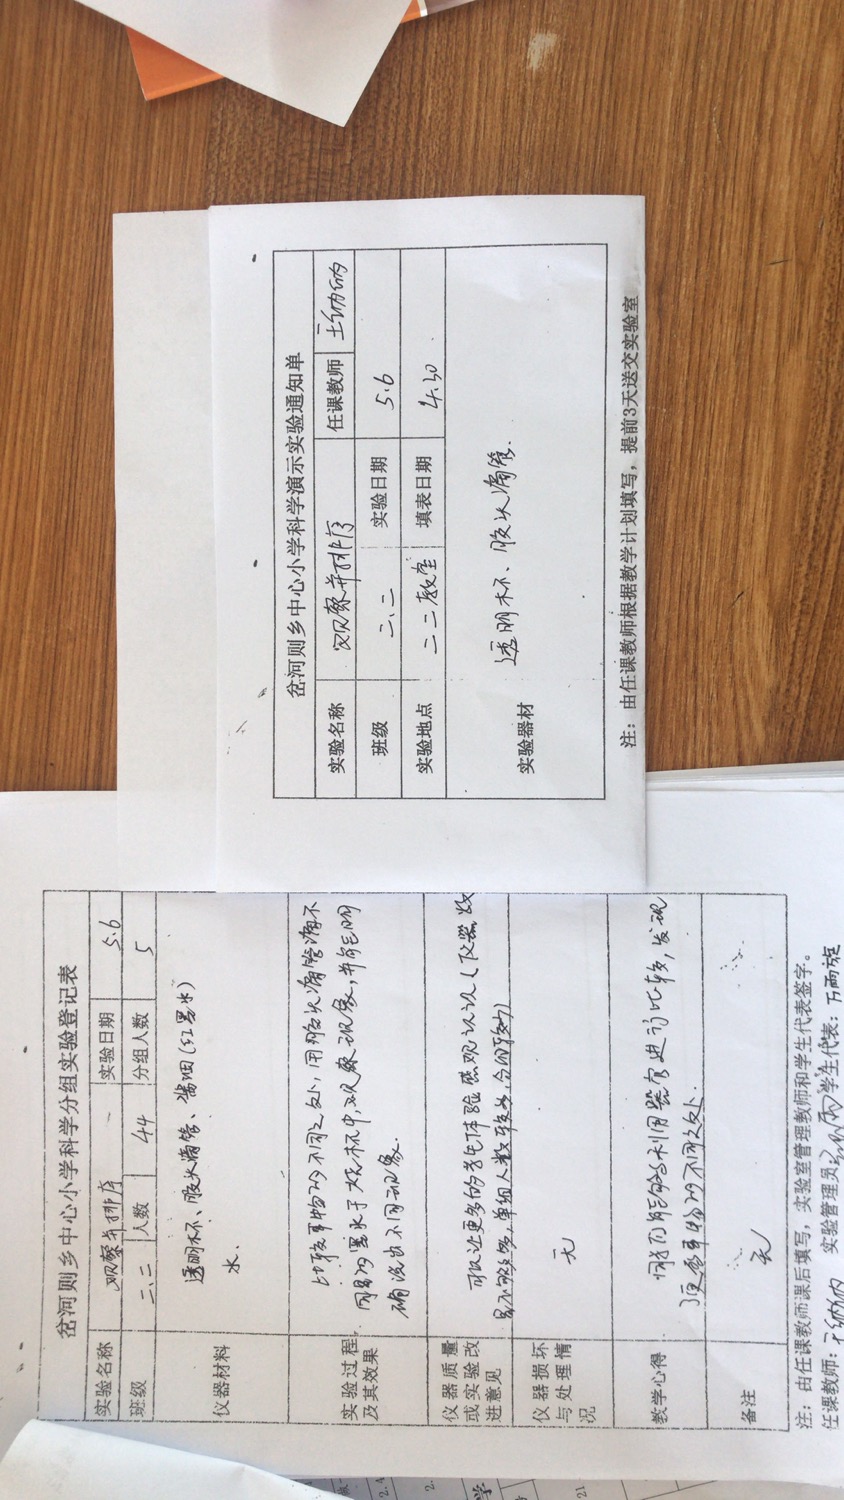 岔河则乡中心小学科学演示实验通知单
实验名称 观察并排序 任课教师
班级 二、二 实验日期 5.6
实验地点 二二教室 填表日期 4.30
实验器材 透明杯、胶头滴管.
注：由任课教师根据教学计划填写，提前3天送交实验室
岔河则乡中心小学科学分组实验登记表
实验名称 观察并排序 实验日期 5.6
班级 二、二 人数 44 分组人数 5
仪器材料 透明杯、胶头滴管、酱油(红墨水)
水.
实验过程 比较事物的不同之处，用胶头滴管滴不
及其效果 同 的墨水于大烧杯中，观察现象，并能明
确说出不同现象.
仪器质量 可以让更多的学生体验感观认识(仪器数
或实验改 量不够多，单组人数较多，分的较少)
进意见
仪器损坏 无
与处理情
况
教学心得 同学们能够利用器官进行比较，发现
了更多事物的不同之处.
备注 无
注：由任课教师课后填写，实验室管理教师和学生代表签字。
任课教师： 实验管理员 学生代表：
2.
21
学